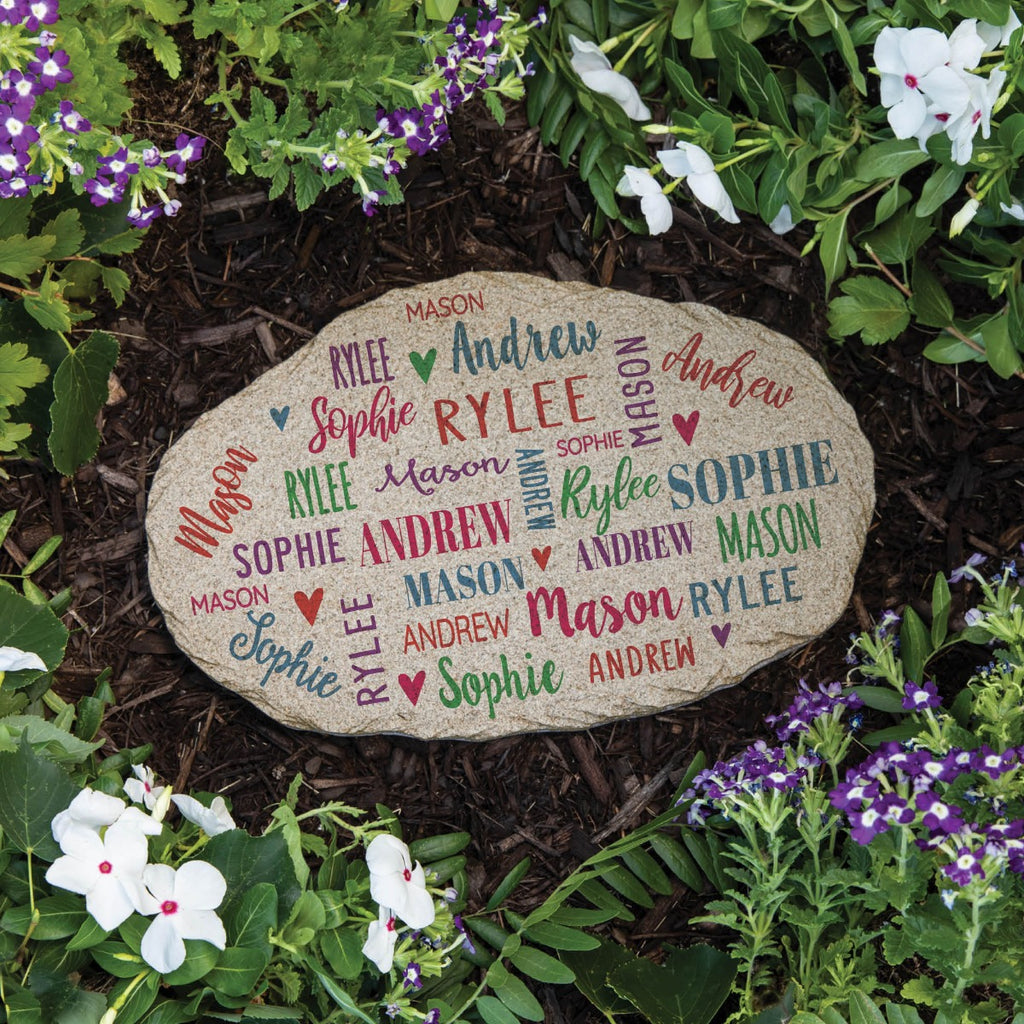 MASON
RYLEE
Andrew
MASON
Andrew
Sophie
RYLEE
SOPHIE
Mason
RYLEE
Mason
ANDREW
Rylee
SOPHIE
SOPHIE
ANDREW
ANDREW
MASON
MASON
MASON
Mason
RYLEE
Sophie
RYLEE
ANDREW
Sophie
ANDREW